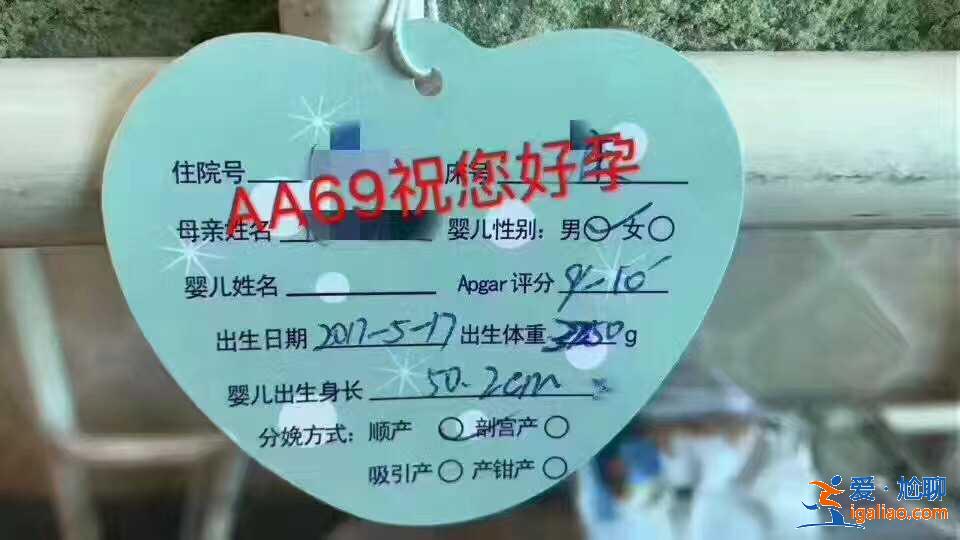 住院号 床号
AA69祝您好孕
母亲姓名 婴儿性别：男○ 女○
婴儿姓名 Apgar评分 9'-10'
出生日期 2017-5-17 出生体重 g
婴儿出生身长 50.2cm
分娩方式：顺产○ 剖宫产○
吸引产○ 产钳产○
爱·尬聊
igaliao.com